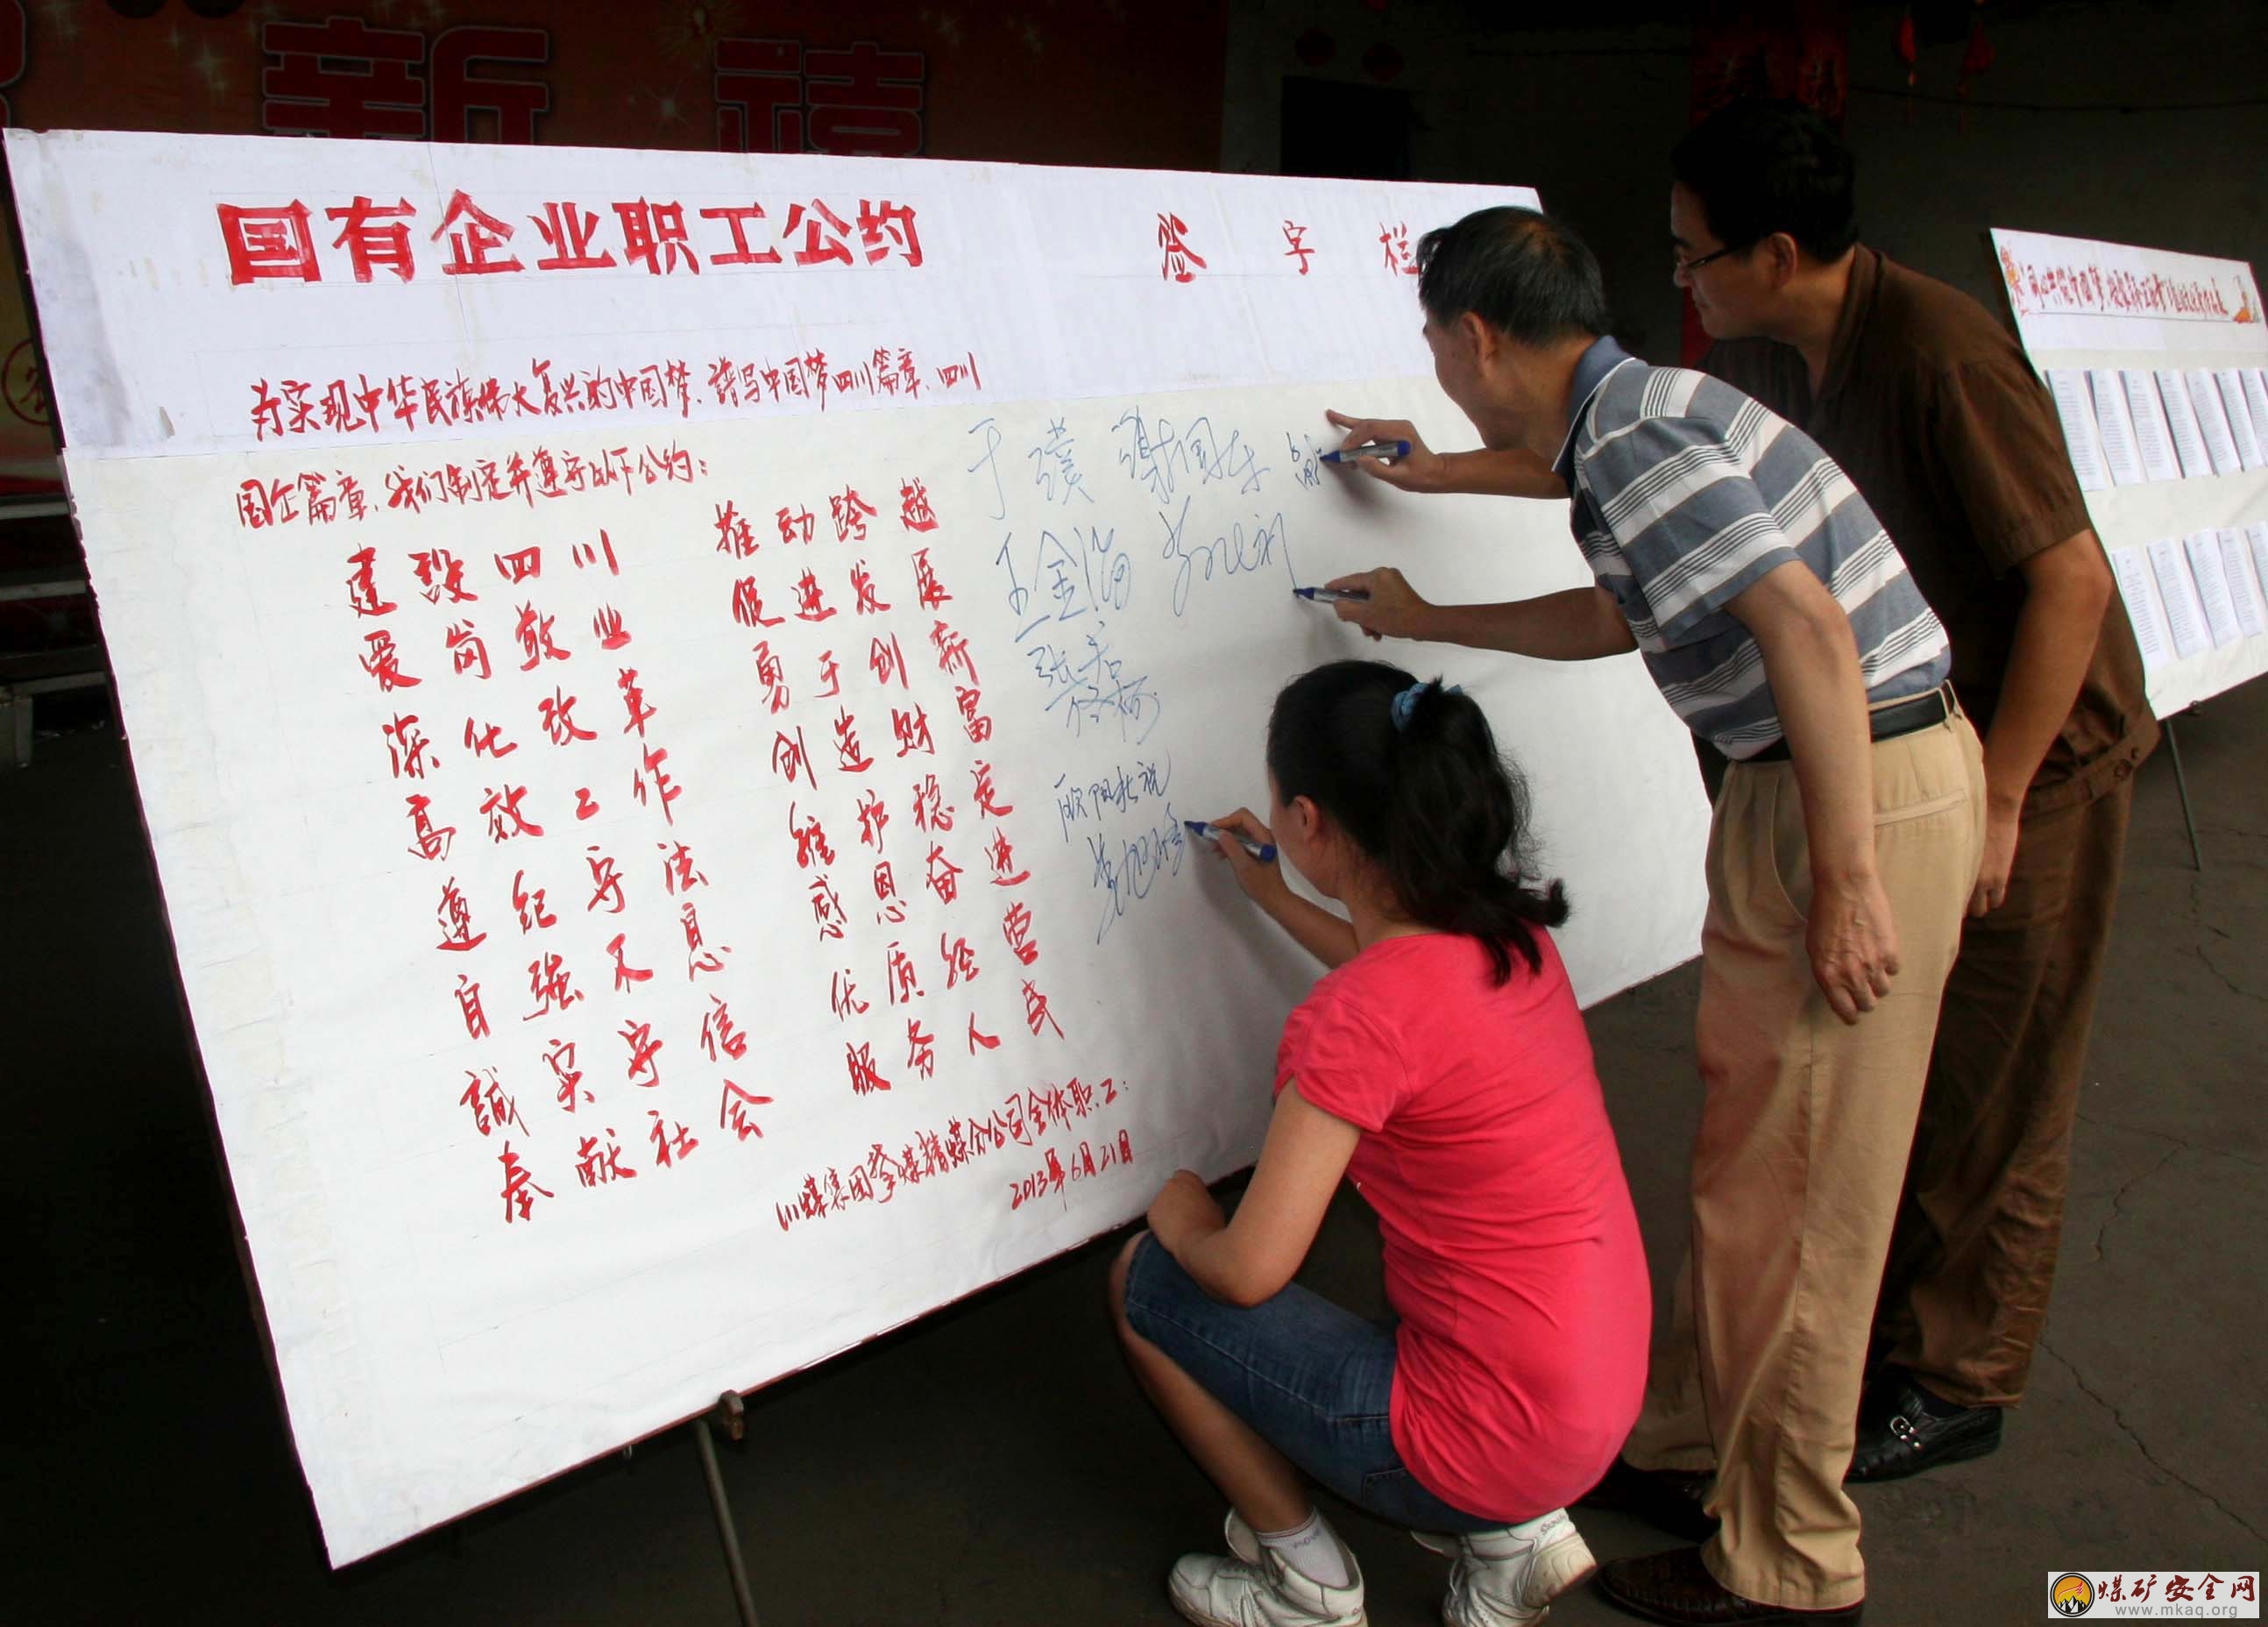 新 禧
国有企业职工公约
签字栏
为实现中华民族伟大复兴的中国梦、谱写中国梦四川篇章、四川
国企篇章、我们制定并遵守以下公约：
建设四川 推动跨越
爱岗敬业 促进发展
深化改革 勇于创新
高效工作 创造财富
遵纪守法 维护稳定
自强不息 感恩奋进
誠实守信 优质经营
奉献社会 服务人民
川煤集团攀煤精煤分公司全体职工：
2013年6月21日
于
王金
张
欧阳
煤矿安全网
www.mkaq.org